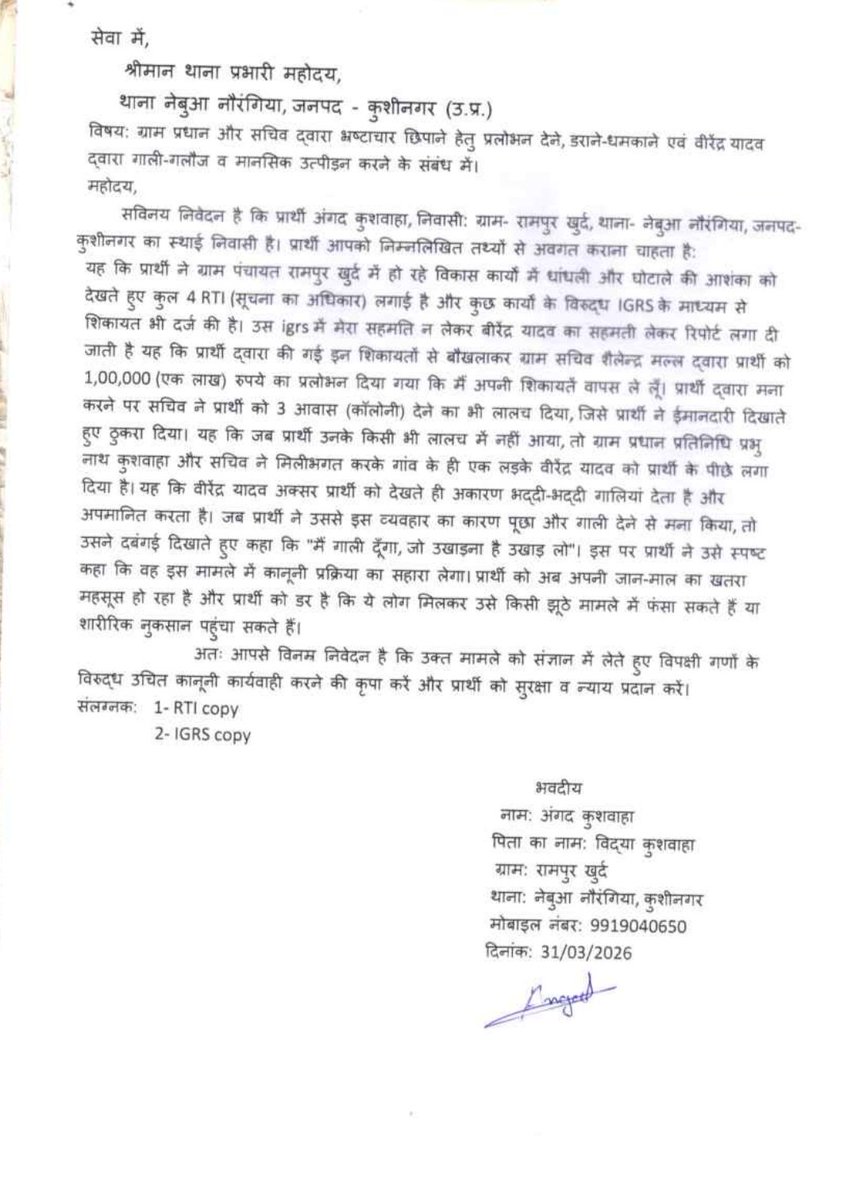 सेवा में,
श्रीमान थाना प्रभारी महोदय,
थाना नेबुआ नौरंगिया, जनपद - कुशीनगर (उ.प्र.)
विषय: ग्राम प्रधान और सचिव द्वारा भ्रष्टाचार छिपाने हेतु प्रलोभन देने, डराने-धमकाने एवं वीरेंद्र यादव
द्वारा गाली-गलौज व मानसिक उत्पीड़न करने के संबंध में।
महोदय,
सविनय निवेदन है कि प्रार्थी अंगद कुशवाहा, निवासी: ग्राम- रामपुर खुर्द, थाना- नेबुआ नौरंगिया, जनपद-
कुशीनगर का स्थाई निवासी है। प्रार्थी आपको निम्नलिखित तथ्यों से अवगत कराना चाहता है:
यह कि प्रार्थी ने ग्राम पंचायत रामपुर खुर्द में हो रहे विकास कार्यों में धांधली और घोटाले की आशंका को
देखते हुए कुल 4 RTI (सूचना का अधिकार) लगाई है और कुछ कार्यों के विरुद्ध IGRS के माध्यम से
शिकायत भी दर्ज की है। उस igrs में मेरा सहमति न लेकर बीरेंद्र यादव का सहमती लेकर रिपोर्ट लगा दी
जाती है यह कि प्रार्थी द्वारा की गई इन शिकायतों से बौखलाकर ग्राम सचिव शैलेन्द्र मल्ल द्वारा प्रार्थी को
1,00,000 (एक लाख) रुपये का प्रलोभन दिया गया कि मैं अपनी शिकायतें वापस ले लूँ। प्रार्थी द्वारा मना
करने पर सचिव ने प्रार्थी को 3 आवास (कॉलोनी) देने का भी लालच दिया, जिसे प्रार्थी ने ईमानदारी दिखाते
हुए ठुकरा दिया। यह कि जब प्रार्थी उनके किसी भी लालच में नहीं आया, तो ग्राम प्रधान प्रतिनिधि प्रभु
नाथ कुशवाहा और सचिव ने मिलीभगत करके गांव के ही एक लड़के वीरेंद्र यादव को प्रार्थी के पीछे लगा
दिया है। यह कि वीरेंद्र यादव अक्सर प्रार्थी को देखते ही अकारण भद्दी-भद्दी गालियां देता है और
अपमानित करता है। जब प्रार्थी ने उससे इस व्यवहार का कारण पूछा और गाली देने से मना किया, तो
उसने दबंगई दिखाते हुए कहा कि "मैं गाली दूँगा, जो उखाड़ना है उखाड़ लो"। इस पर प्रार्थी ने उसे स्पष्ट
कहा कि वह इस मामले में कानूनी प्रक्रिया का सहारा लेगा। प्रार्थी को अब अपनी जान-माल का खतरा
महसूस हो रहा है और प्रार्थी को डर है कि ये लोग मिलकर उसे किसी झूठे मामले में फंसा सकते हैं या
शारीरिक नुकसान पहुंचा सकते हैं।
अतः आपसे विनम्र निवेदन है कि उक्त मामले को संज्ञान में लेते हुए विपक्षी गणों के
विरुद्ध उचित कानूनी कार्यवाही करने की कृपा करें और प्रार्थी को सुरक्षा व न्याय प्रदान करें।
संलग्नक: 1- RTI copy
2- IGRS copy
भवदीय
नाम: अंगद कुशवाहा
पिता का नाम: विद्या कुशवाहा
ग्राम: रामपुर खुर्द
थाना: नेबुआ नौरंगिया, कुशीनगर
मोबाइल नंबर: 9919040650
दिनांक: 31/03/2026